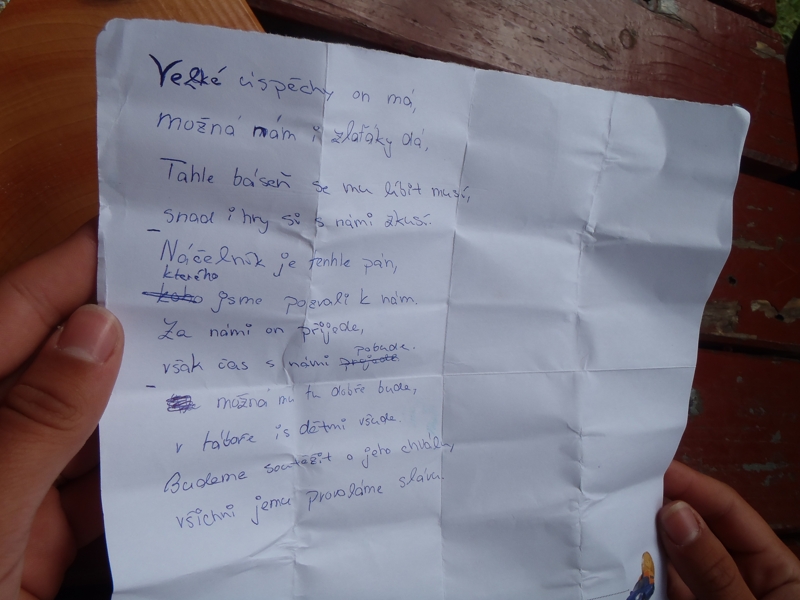 Velké úspěchy on má,
možná nám i zlaťáky dá,
Tahle báseň se mu líbit musí,
snad i hry si s námi zkusí.
Náčelník je tenhle pán,
kterého
koho jsme pozvali k nám.
Za námi on přijede,
pobude.
však čas s námi přijede
možná mu tu dobře bude,
v táboře is dětmi všude.
Budeme soutěžit o jeho chválu,
všichni jemu provoláme slávu.